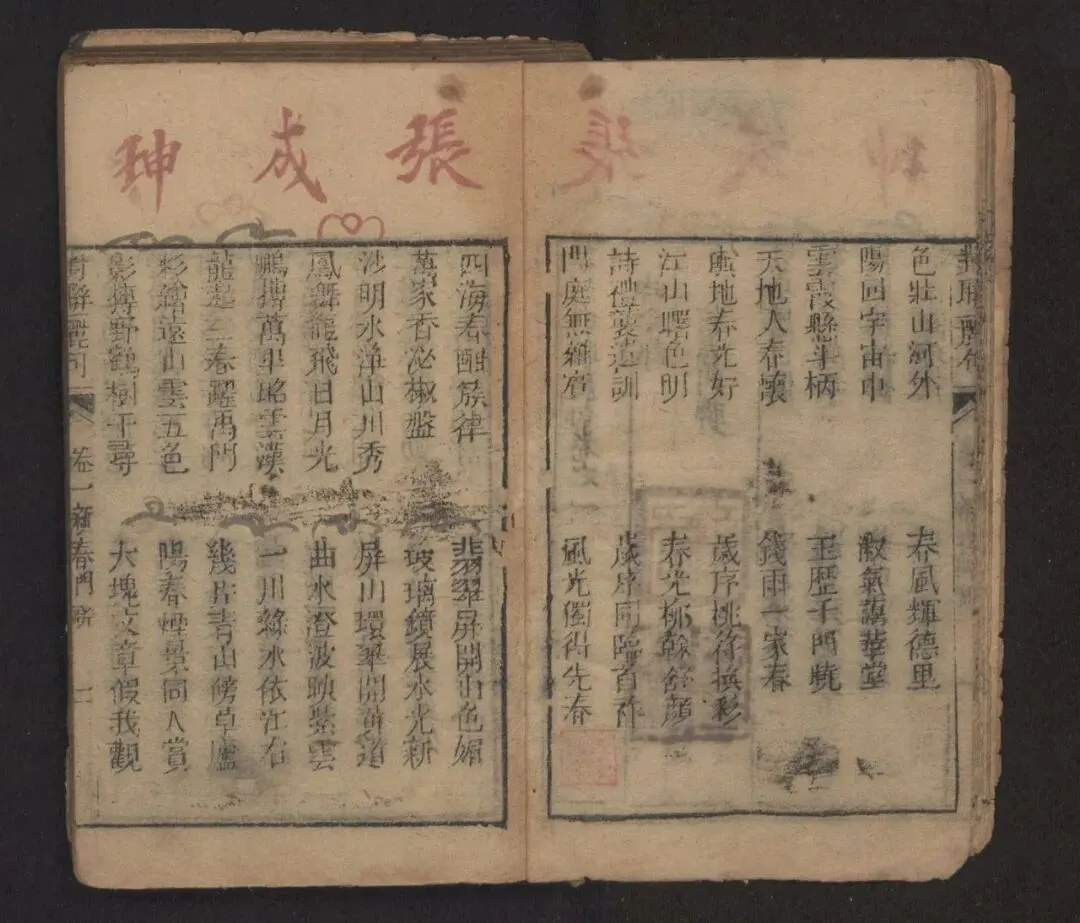 張成珅
色壯山河外
陽回宇宙中
雲霞縣半柄
天地人春懷
輿地春光好
江山曙色明
詩禮遺訓
門庭無雜賓
春風輝德里
淑氣藹華堂
玉歷千門曉
錢雨一家春
歲序桃符換彩
春光柳幹舒顏
歲序同臨首祚
風光獨得先春
四海春酣簇律
萬家香泌椒盤
沙明水淨山川秀
鳳舞龍飛日月光
鵬摶萬里昭雲漢
龍起三春躍禹門
彩繪遠山雲五色
影摶野鶴樹千尋
翡翠屏開山色媚
玻璃鏡展水光新
屏山環翠開黃道
曲水澄波映紫雲
一川綠水依江右
幾片青山傍草廬
陽春煙景同人賞
大塊文章假我觀
麗句 卷一 新春門 二